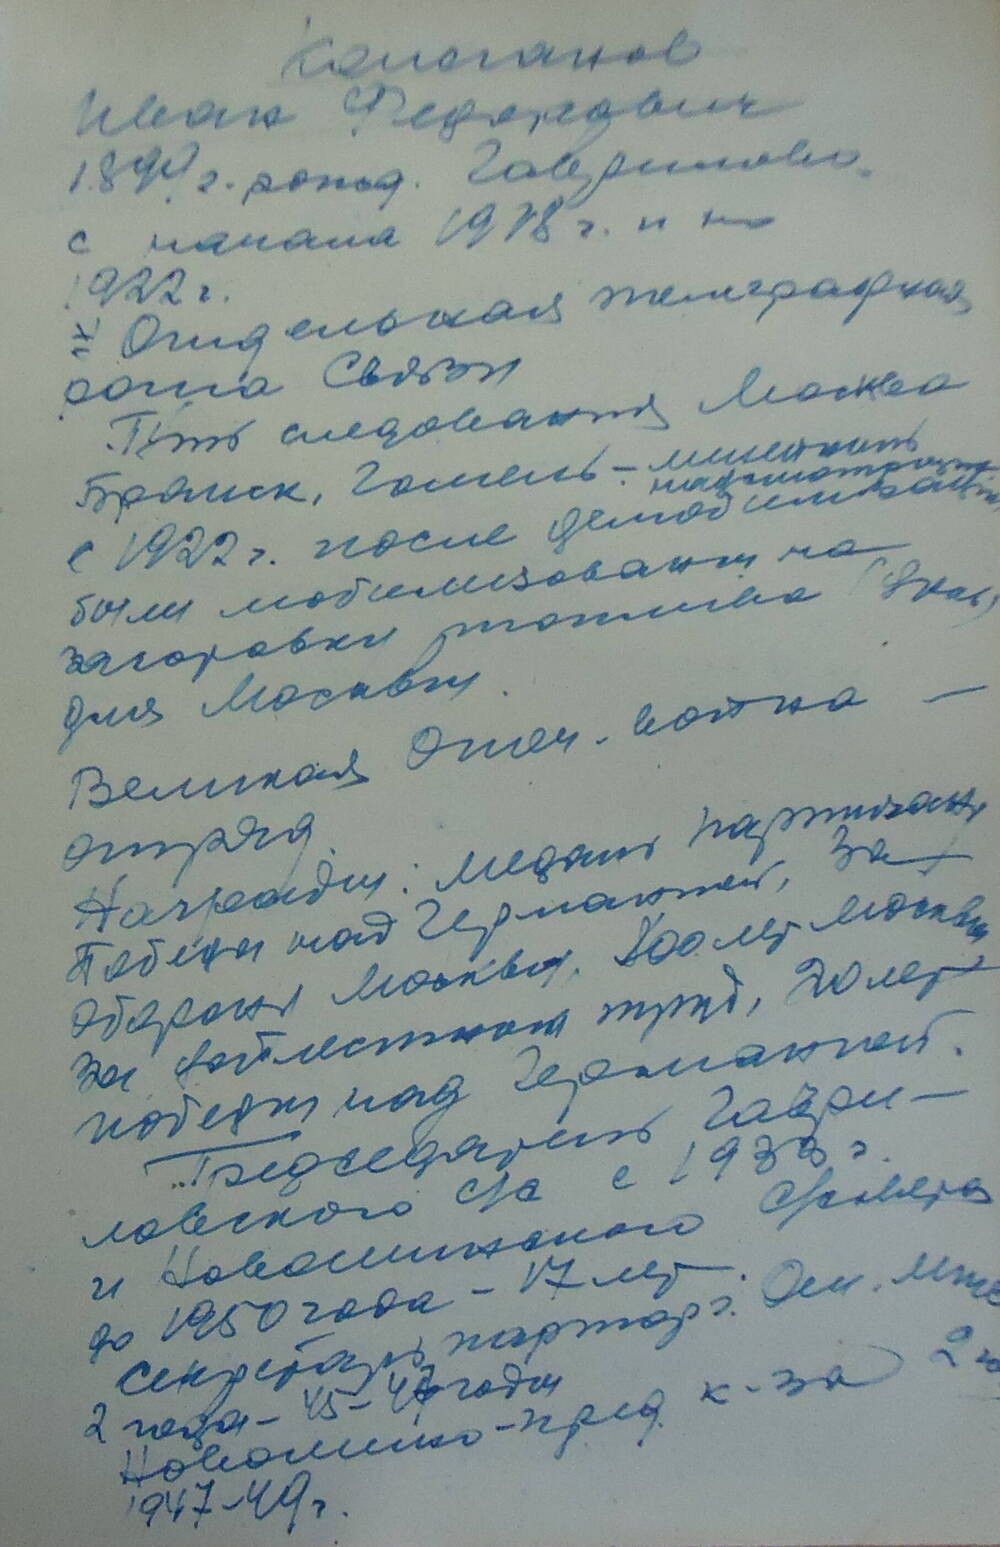 Иван Федорович
1899 г. рожд. Гаврилово.
с начала 1918 г. и по
1922 г.
Отдельная телеграфная
рота Связи
Путь следования Москва
Брянск, Гомель –
с 1922 г. после демобилизации
были мобилизованы на
заготовки топлива (дров)
для Москвы.
Великая Отеч. война –
отряд.
Награды: медаль партизан
Победы над Германией, За
обороны Москвы, 800 лет Москвы
За доблестный труд, 20 лет
победы над Германией.
Председатель Гаври–
ловского с/с с 1933 г.
и с/совета
до 1950 года – 17 лет.
секретарь парторг.
2 года – 45–47 годы
пред. к-за 2
1947–49 г.